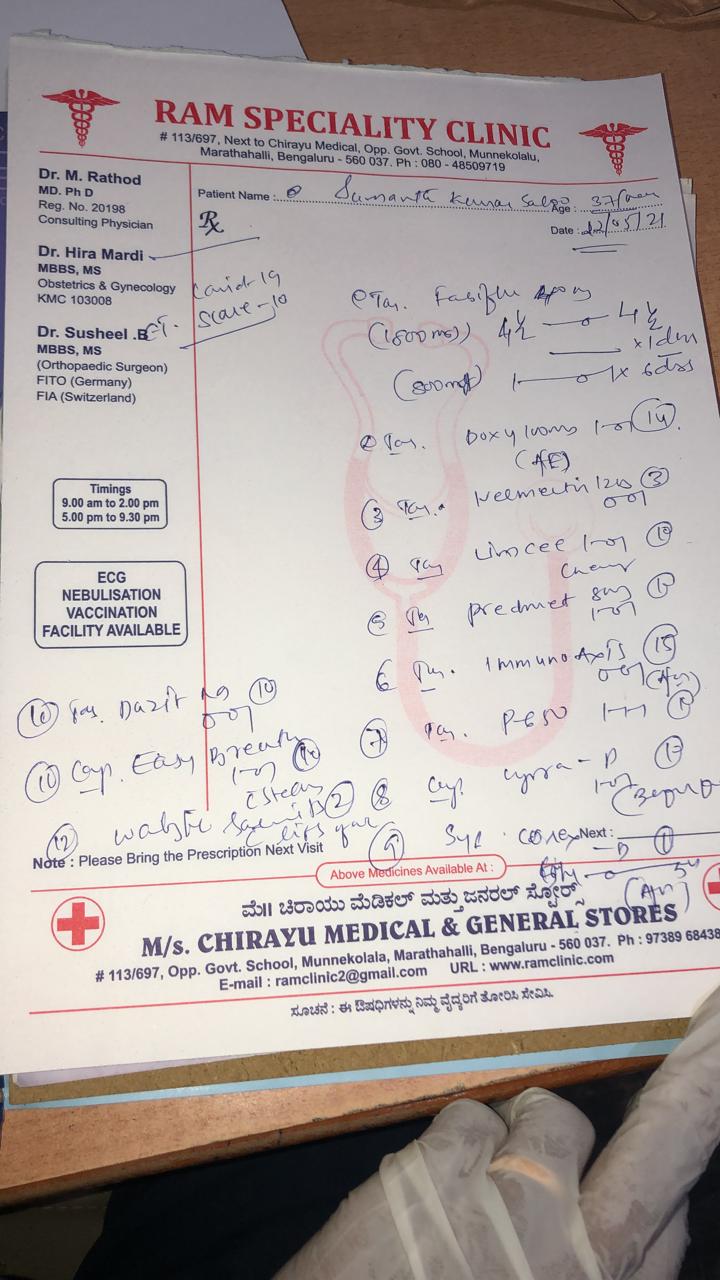 RAM SPECIALITY CLINIC
# 113/697, Next to Chirayu Medical, Opp. Govt. School, Munnekolalu,
Marathahalli, Bengaluru - 560 037. Ph : 080 - 48509719
Dr. M. Rathod
MD. Ph D
Reg. No. 20198
Consulting Physician
Dr. Hira Mardi
MBBS, MS
Obstetrics & Gynecology
KMC 103008
Dr. Susheel .B
MBBS, MS
(Orthopaedic Surgeon)
FITO (Germany)
FIA (Switzerland)
Timings
9.00 am to 2.00 pm
5.00 pm to 9.30 pm
ECG
NEBULISATION
VACCINATION
FACILITY AVAILABLE
Patient Name : Sumanth Kumar Age : 37/
Date : 22/05/21
Rx
Covid-19
CT. Score-10
Tas.
(1800mg) 4½ — o — 4½
x 1 day
(800mg) 1 — o — 1 x 6 days
2 Tas. Doxy 100mg 1-o-1 14
(AF)
3 Tas. 12 3
o-o-1
4 Tas Limcee 1-o-1 10
Chew
5 Tas predmet 8mg
1-o-1
6 Tas. Immuno AXIS 15
o-o-1
7 Tas. P-650 1-1-1
8 Cap. Cyra-D
1-o-1
9 Syp. Corex
-D 1
10 Tas. 10
o-o-1
Cap. Easy Breath
1-o-1
(Steam)
12 2
Note : Please Bring the Prescription Next Visit
Next :
Above Medicines Available At :
ಮೆ॥ ಚಿರಾಯು ಮೆಡಿಕಲ್ ಮತ್ತು ಜನರಲ್ ಸ್ಟೋರ್ಸ್
M/s. CHIRAYU MEDICAL & GENERAL STORES
# 113/697, Opp. Govt. School, Munnekolala, Marathahalli, Bengaluru - 560 037. Ph : 97389 68438
E-mail : ramclinic2@gmail.com URL : www.ramclinic.com
ಸೂಚನೆ : ಈ ಔಷಧಿಗಳನ್ನು ನಿಮ್ಮ ವೈದ್ಯರಿಗೆ ತೋರಿಸಿ ಸೇವಿಸಿ.